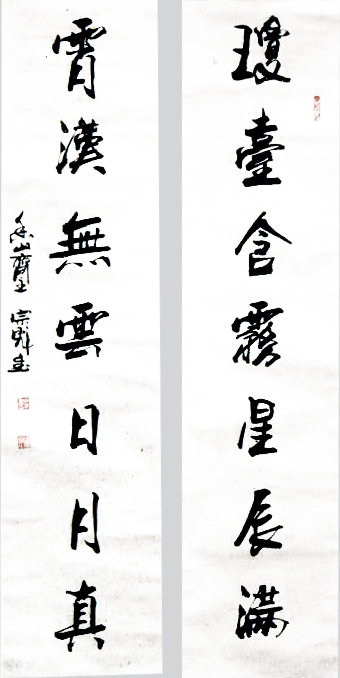 瓊臺含霧星辰滿
霄漢無雲日月真